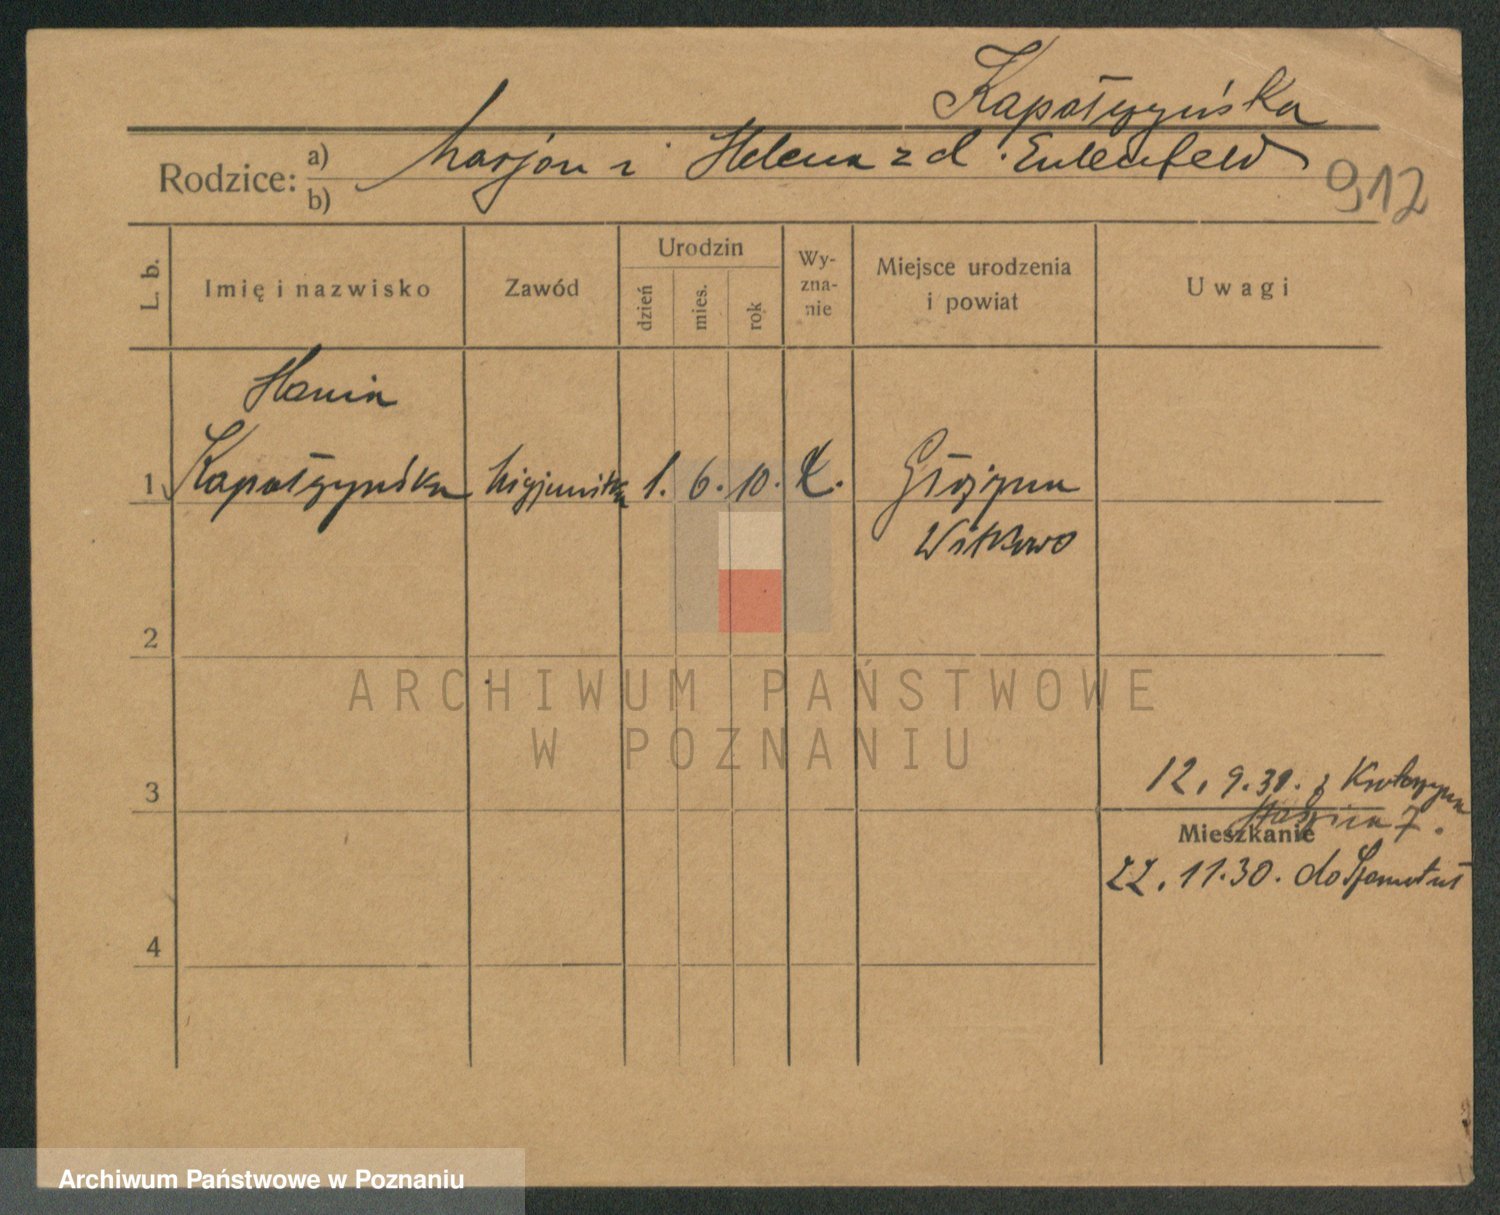 Kapałczyńska
Rodzice: a) b) Marjan i Helena z d. Eulenfeld
912
L. b.
Imię i nazwisko
Zawód
Urodzin
dzień
mies.
rok
Wy-
zna-
nie
Miejsce urodzenia
i powiat
Uwagi
Hania
1 Kapałczyńska higjenistka 1. 6. 10. k.
Witkowo
2
ARCHIWUM PAŃSTWOWE
W POZNANIU
3
12. 9. 30. z Krotoszyna
Staszica 7.
Mieszkanie
22. 11. 30. do Szamotuł
4
Archiwum Państwowe w Poznaniu